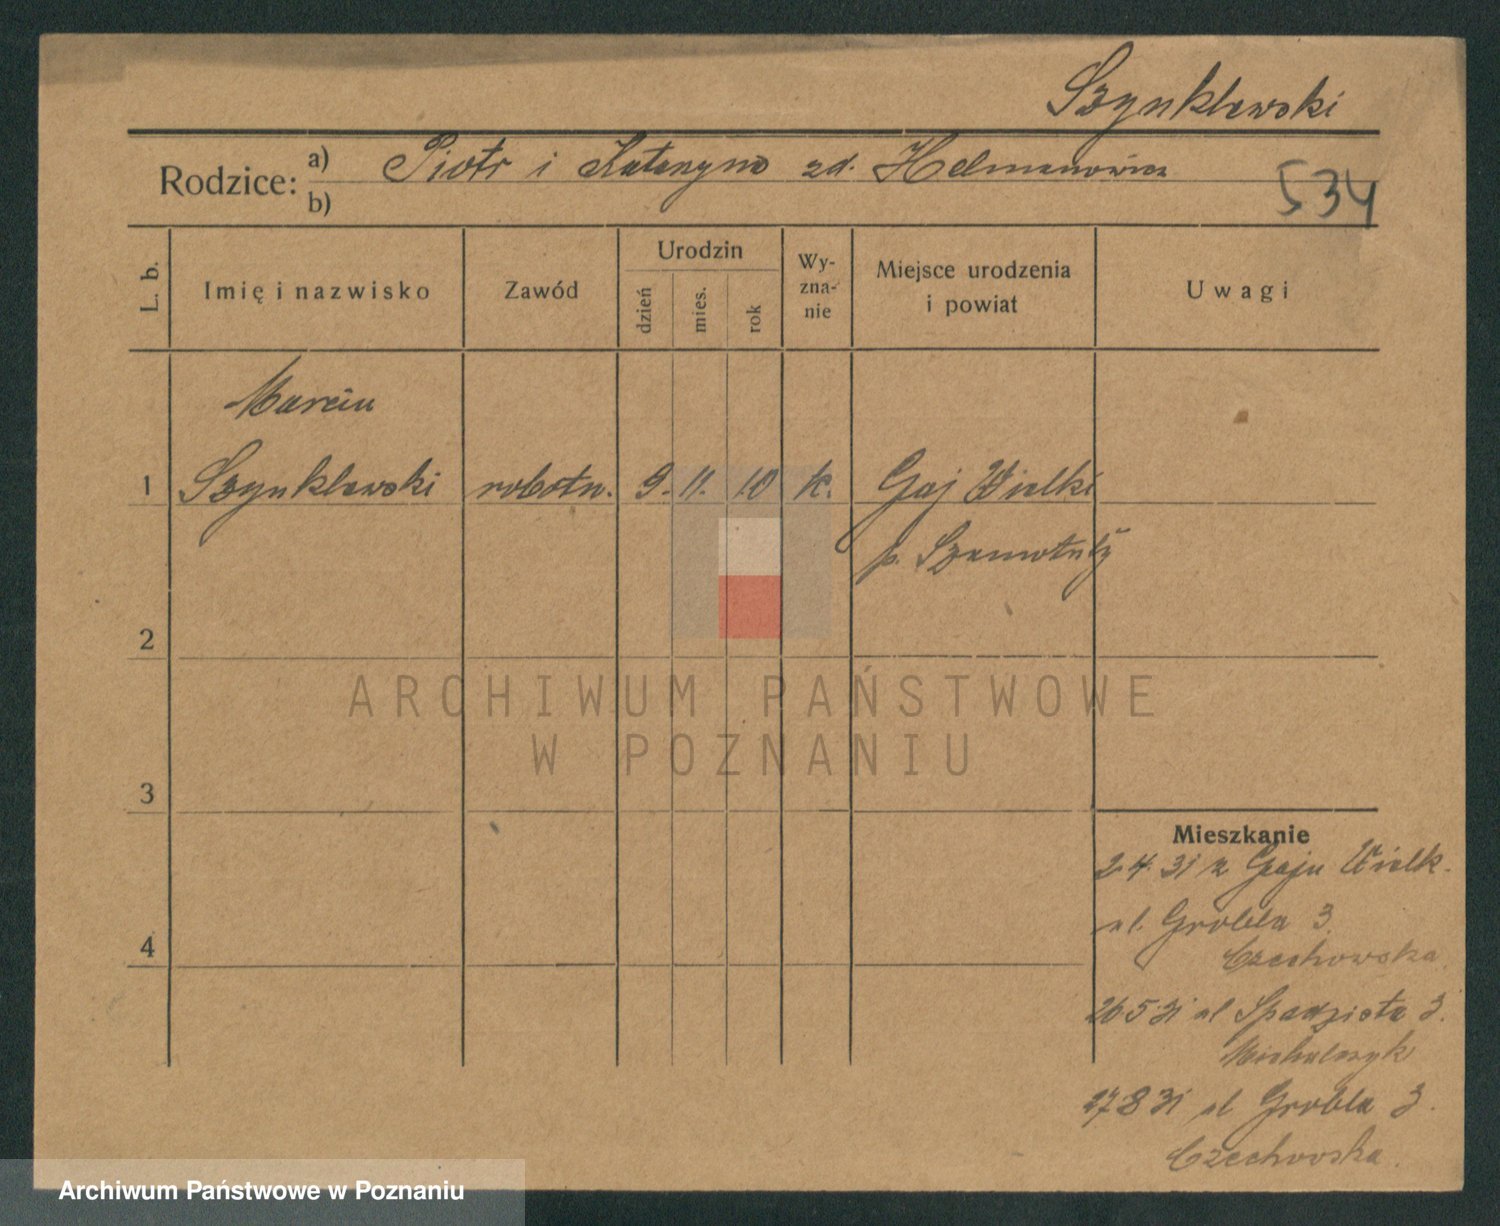 Szynklewski
Rodzice: a) Piotr i Katarzyna zd. Helmanowicz
b)
534
L. b.
Imię i nazwisko
Zawód
Urodzin
dzień
mies.
rok
Wy-
zna-
nie
Miejsce urodzenia
i powiat
Uwagi
Marcin
1 Szynklewski robotn. 9. 11. 10 k. Gaj Wielki
p. Szamotuły
2
3
4
ARCHIWUM PAŃSTWOWE
W POZNANIU
Mieszkanie
2.4.31 z Gaju Wielk.
ul. Grobla 3
Czechowska.
26 5 31 ul Spadzista 3.
Michalczyk
27 8 31 ul Grobla 3.
Czechowska.
Archiwum Państwowe w Poznaniu